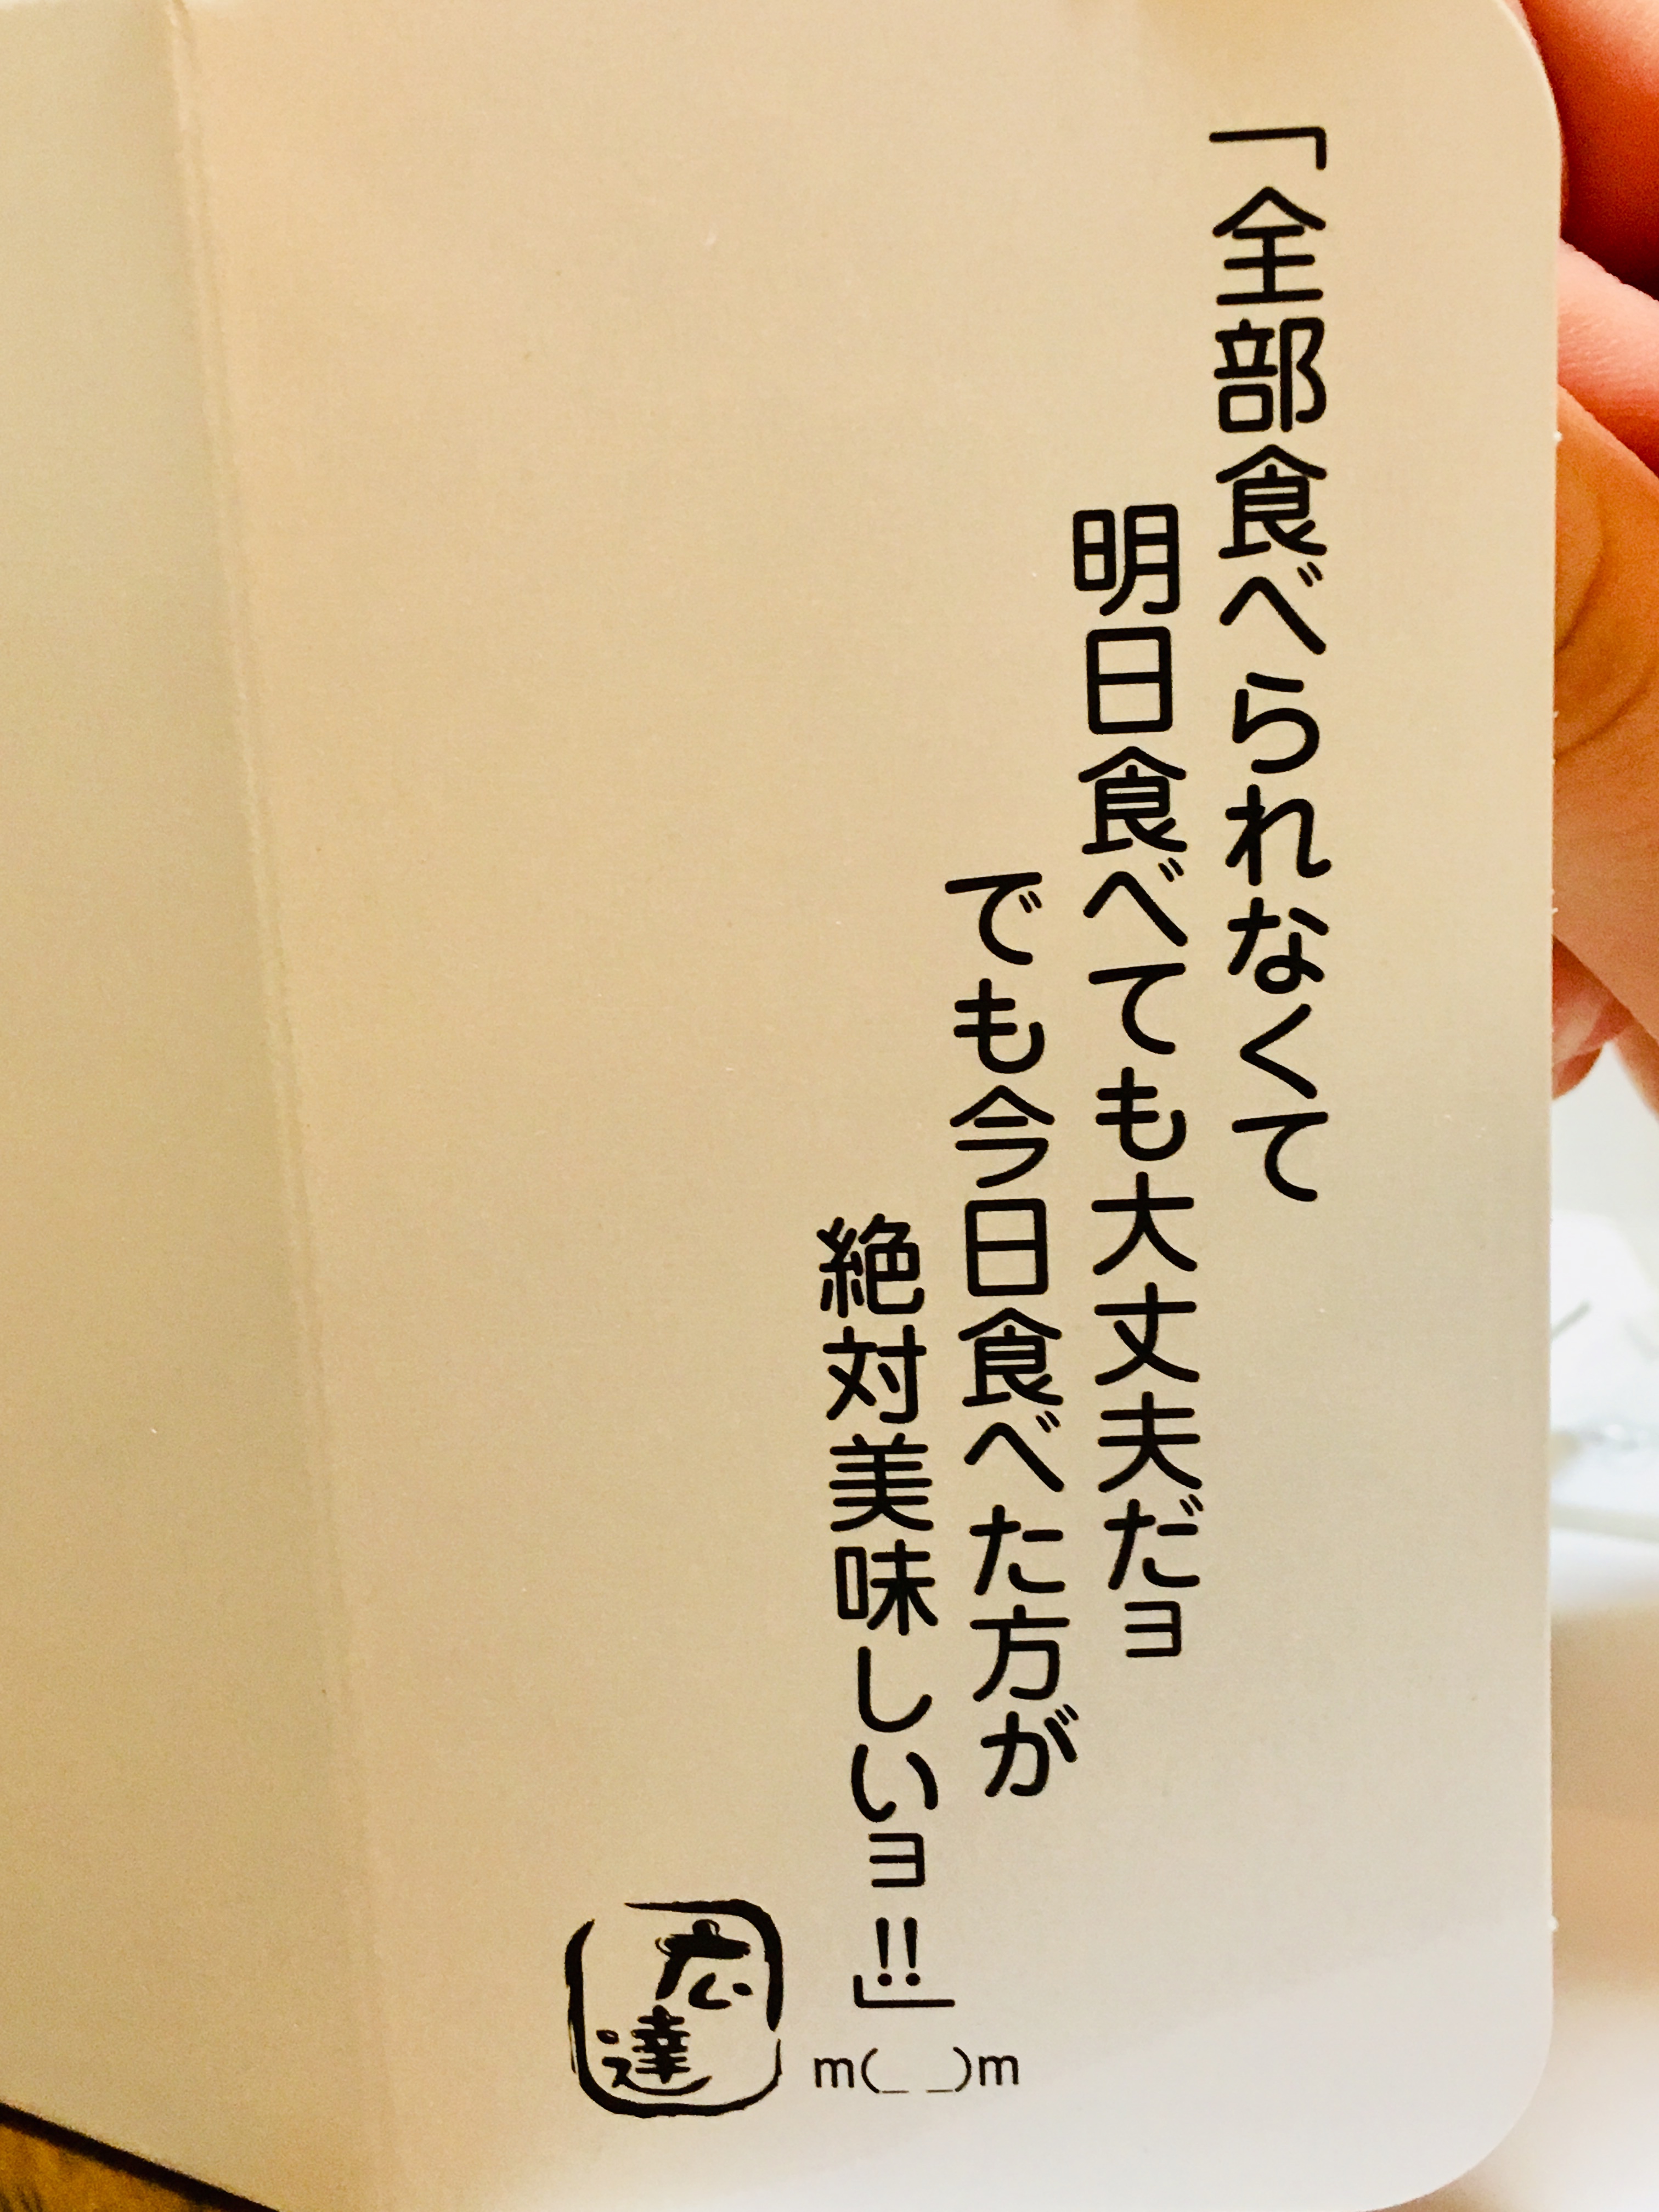 「全部食べられなくて
明日食べても大丈夫だョ
でも今日食べた方が
絶対美味しいョ!!」
m(_ _)m
広達